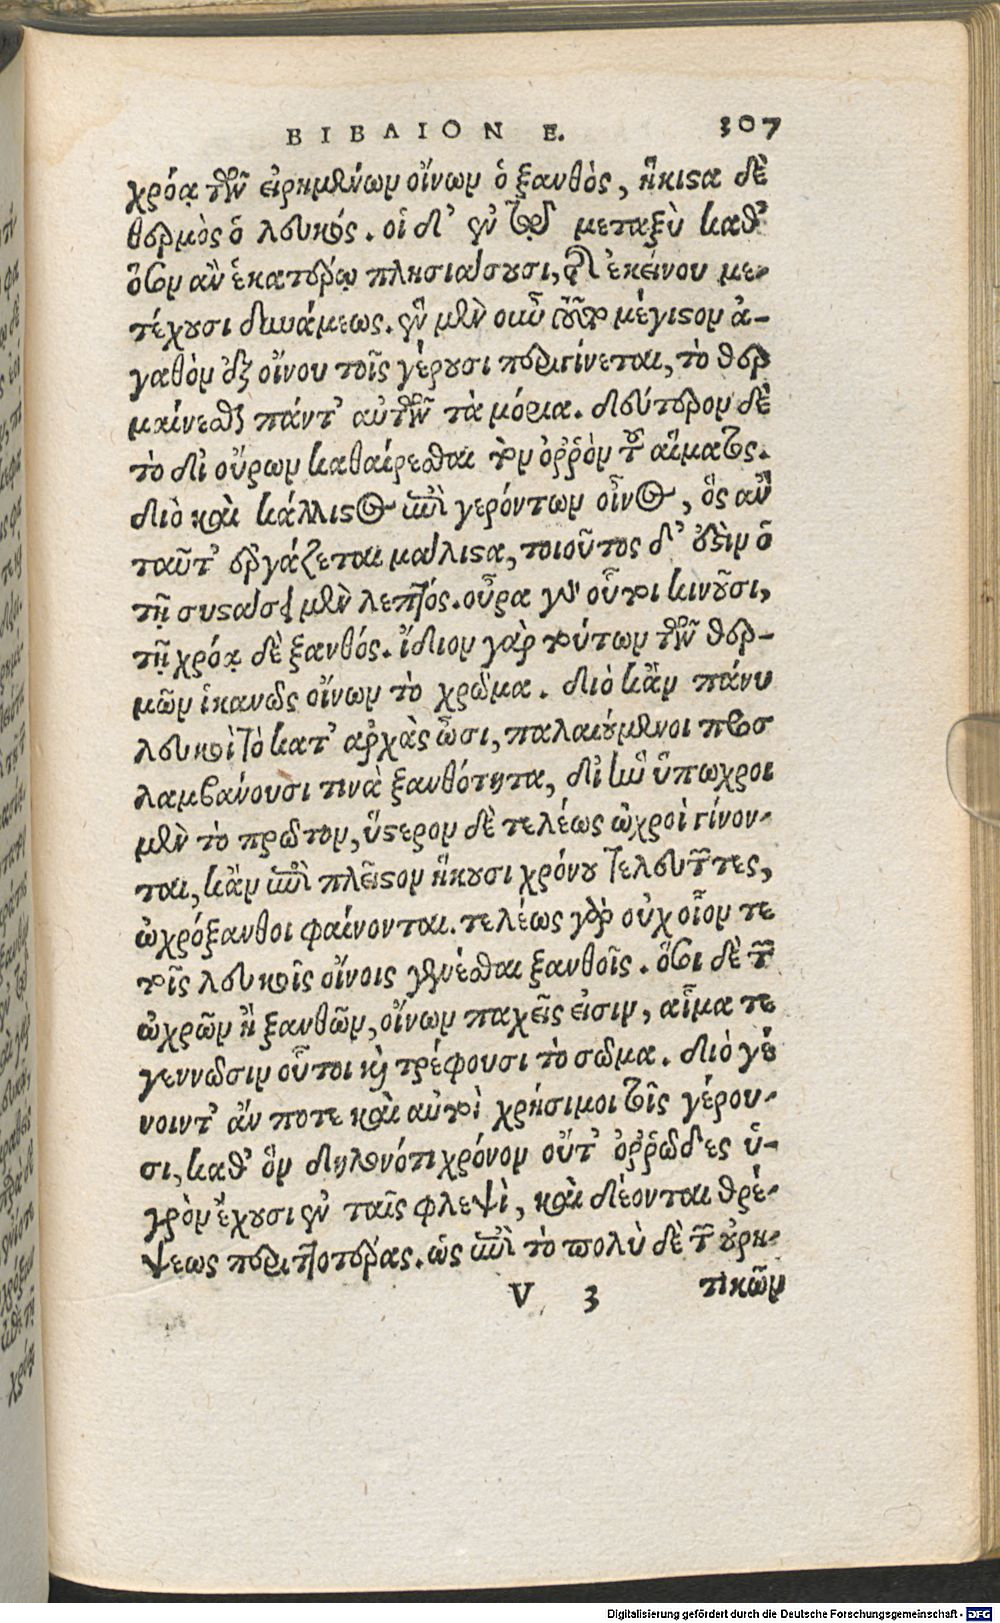 ΒΙΒΛΙΟΝ Ε. 307
χρόᾳ τῶν εἰρημένων οἴνων ὁ ξανθὸς, ἥκιστα δὲ
θερμὸς ὁ λευκός. οἱ δ' ἐν τῷ μεταξὺ καθ'
ὅσον ἂν ἑκατέρῳ πλησιάσουσι, τῆς ἐκείνου με-
τέχουσι δυνάμεως. ἓν μὲν οὖν τοῦτο μέγιστον ἀ-
γαθὸν ἐξ οἴνου τοῖς γέρουσι περιγίνεται, τὸ θερ
μαίνεσθαι πάντ' αὐτῶν τὰ μόρια. δεύτερον δὲ
τὸ δι' οὔρων καθαίρεσθαι τὸν ὀῤῥὸν τοῦ αἵματος.
διὸ καὶ κάλλιστος ἐπὶ γερόντων οἶνος, ὃς ἂν
ταῦτ' ἐργάζεται μάλιστα, τοιοῦτος δ' ἐστὶν ὁ
τῇ συστάσει μὲν λεπτός. οὖρα γὰρ οὗτοι κινοῦσι,
τῇ χρόᾳ δὲ ξανθός. ἴδιον γὰρ τούτων τῶν θερ-
μῶν ἱκανῶς οἴνων τὸ χρῶμα. διὸ κἂν πάνυ
λευκοὶ τὸ κατ' ἀρχὰς ὦσι, παλαιούμενοι προσ
λαμβάνουσι τινὰ ξανθότητα, δι' ἣν ὕπωχροι
μὲν τὸ πρῶτον, ὕστερον δὲ τελέως ὠχροὶ γίνον-
ται, κἂν ἐπὶ πλεῖστον ἥκουσι χρόνου τελευτῶντες,
ὠχρόξανθοι φαίνονται. τελέως γὰρ οὐχ οἷον τε
τοῖς λευκοῖς οἴνοις γενέσθαι ξανθοῖς. ὅσοι δὲ τῶν
ὠχρῶν ἢ ξανθῶν, οἴνων παχεῖς εἰσιν, αἷμα τε
γεννῶσιν οὗτοι καὶ τρέφουσι τὸ σῶμα. διὸ γέ
νοιντ' ἄν ποτε καὶ αὐτοὶ χρήσιμοι τοῖς γέρου-
σι, καθ' ὃν δηλονότι χρόνον οὔτ' ὀῤῥῶδες ὑ-
γρὸν ἔχουσι ἐν ταῖς φλεψὶ, καὶ δέονται θρέ-
ψεως περιττοτέρας. ὡς ἐπὶ τὸ πολὺ δὲ τῶν οὐρη-
V 3 τικῶν
Digitalisierung gefördert durch die Deutsche Forschungsgemeinschaft - DFG